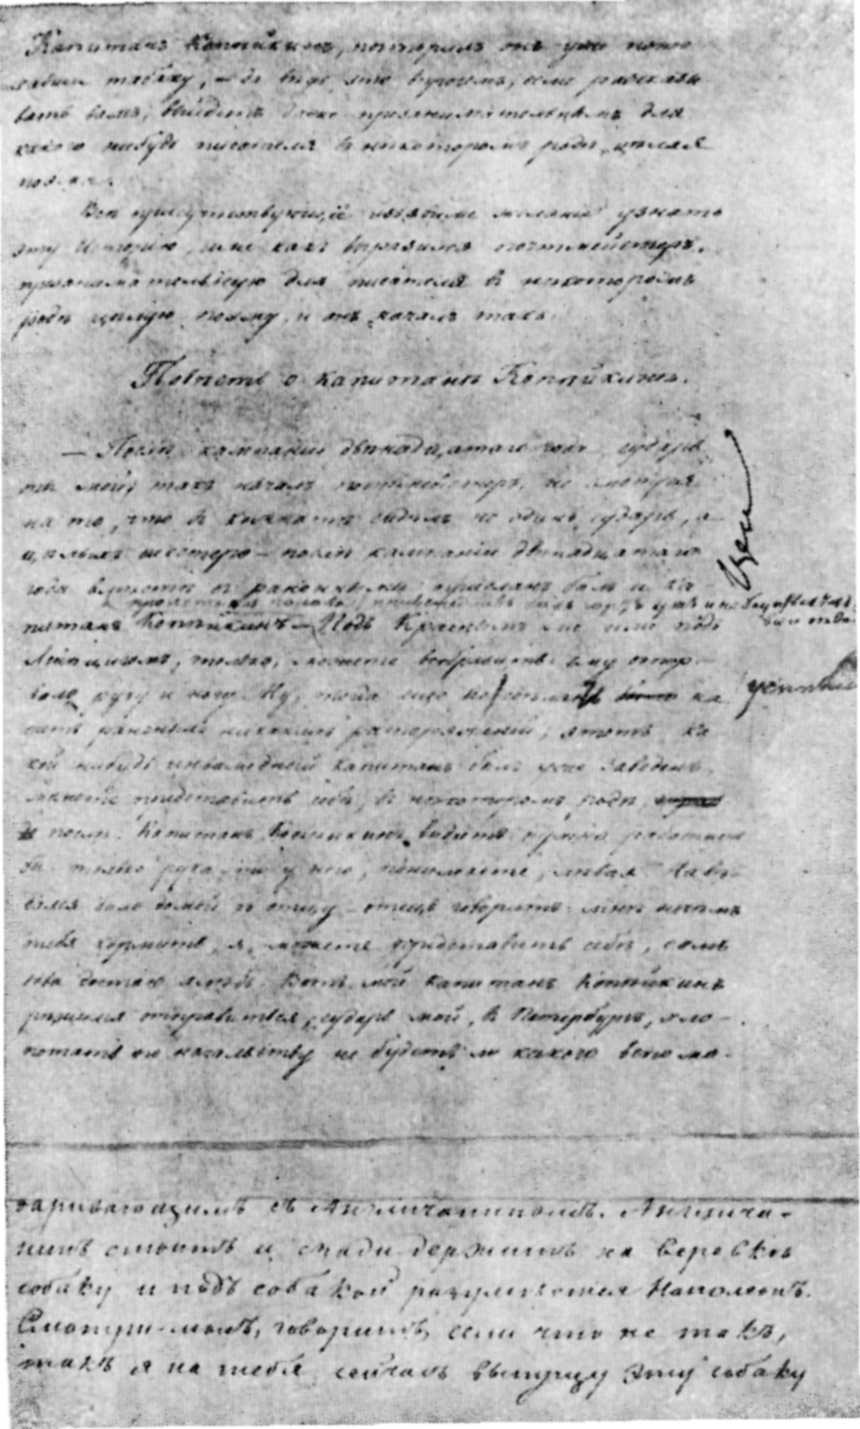 Капитанъ Копѣйкинъ, повторилъ онъ уже понюхавши
табаку, да вѣдь это впрочемъ, если разсказы-
вать вамъ, выйдетъ даже презанимательнымъ для
какого нибудь писателя въ нѣкоторомъ родѣ, цѣлая
поэма.
Всѣ присутствующіе изъявили желаніе узнать
эту исторію, или какъ выразился почтмейстеръ,
презанимательную для писателя въ нѣкоторомъ
родѣ цѣлую поэму, и онъ началъ такъ.
Повѣсть о капитанѣ Копѣйкинѣ.
— Послѣ кампаніи двѣнадцатаго года, сударь
ты мой, такъ началъ почтмейстеръ, не смотря
на то, что въ комнатѣ сидѣлъ не одинъ сударь, а
цѣлыхъ шестеро — послѣ кампаніи двѣнадцатаго
года вмѣстѣ съ ранеными присланъ былъ и ка-
пролетная голова,
питанъ Копѣйкинъ — Подъ Краснымъ ли или подъ
Лейпцигомъ, только, можете вообразить, ему отор-
вало руку и ногу. Ну, тогда еще не
счетъ раненыхъ никакихъ распоряженій; этотъ ка-
кой нибудь инвалидный капиталъ былъ уже заведенъ,
можете представить себѣ, въ нѣкоторомъ родѣ,
послѣ. Капитанъ Копѣйкинъ видитъ: нужно работать
бы, только рука-то у него, понимаете, лѣвая. Навѣ-
дался было домой къ отцу — отецъ говоритъ: мнѣ нечѣмъ
тебя кормить, я, можете представить себѣ, самъ
едва достаю хлѣбъ. Вотъ мой капитанъ Копѣйкинъ
рѣшился отправиться, сударь мой, въ Петербургъ, хло-
потать по начальству не будетъ ли какого вспомо-
варивающимъ съ Англичаниномъ. Англича-
нинъ стоитъ и сзади держитъ на веревкѣ
собаку и подъ собакой разумѣется Наполеонъ.
Смотри-молъ, говоритъ, если что не такъ,
такъ я на тебя сейчасъ выпущу эту собаку